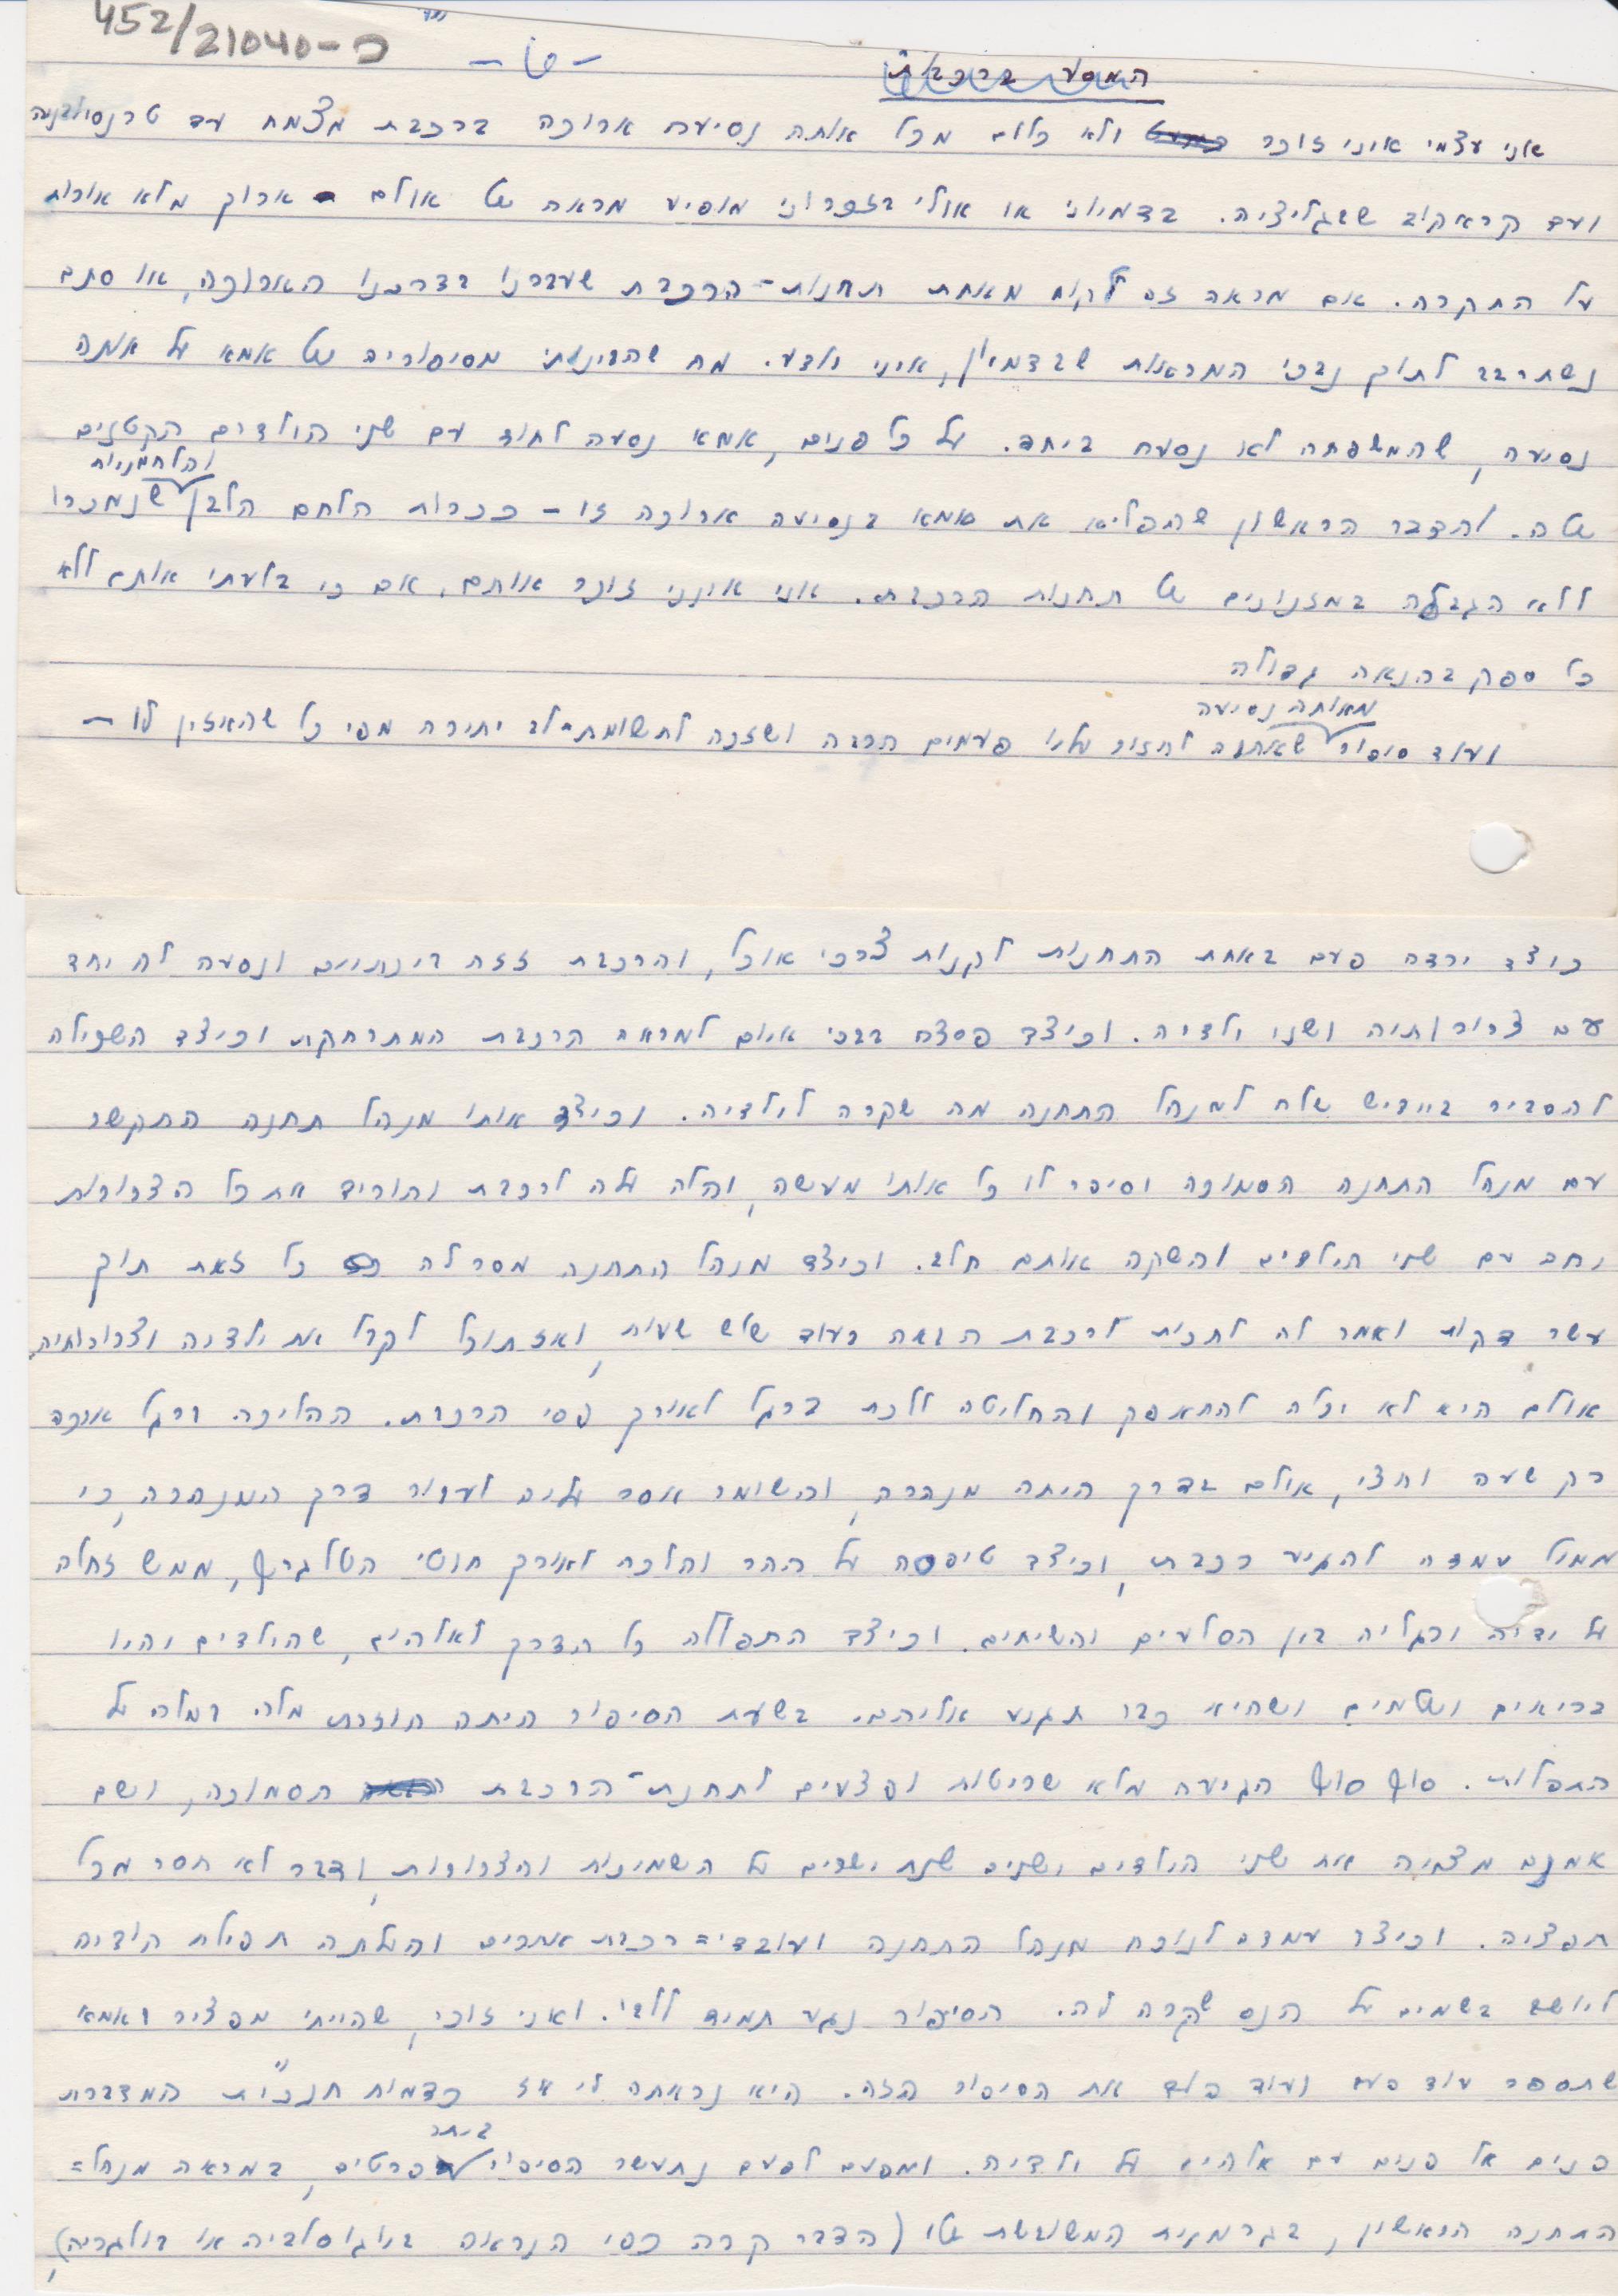 452/21040-כ
- ט -
המסע ברכבת
אני עצמי אינני זוכר ולא כלום מכל אותה נסיעה ארוכה ברכבת מצמח עד טרנסילבניה
ועד קראקוב שבגליציה. בדמיוני או אולי בזכרוני מופיע מראה של אולם ארוך מלא אורות
על התקרה. אם מראה זה לקוח מאחת תחנות-הרכבת שעברנו בדרכנו הארוכה, או סתם
נשתרבב לתוך נבכי המראות שבדמיון, אינני יודע. מה שהבינותי מסיפוריה של אמא על אותה
נסיעה, שהמשפחה לא נסעה ביחד. על כל פנים, אמא נסעה לחוד עם שני הילדים הקטנים
והלחמניות
שלה. והדבר הראשון שהפליא את אמא בנסיעה ארוכה זו - ככרות הלחם הלבן שנמכרו
ללא הגבלה במזנונים של תחנות הרכבת. אני אינני זוכר אותם, אם כי בלעתי אותם ללא
כל ספק בהנאה גדולה
מאותה נסיעה
ועוד סיפור שאהבה לחזור עליו פעמים הרבה ושזכה לתשומת-לב יתירה מפי כל שהאזין לו -
כיצד ירדה פעם באחת התחנות לקנות צרכי אוכל, והרכבת זזה בינתיים ונסעה לה יחד
עם צרורותיה ושני ילדיה. וכיצד פצחה בבכי איום למראה הרכבת המתרחקת וכיצד השכילה
להסביר ביידיש שלה למנהל התחנה מה שקרה לילדיה. וכיצד אותו מנהל תחנה התקשר
עם מנהל התחנה הסמוכה וסיפר לו כל אותו מעשה, והלה עלה לרכבת והוריד את כל הצרורות
יחד עם שני הילדים והשקה אותם חלב. וכיצד מנהל התחנה מסר לה כל זאת תוך
עשר דקות ואמר לה לחכות לרכבת הבאה בעוד שלש שעות, ואז תוכל לקבל את ילדיה וצרורותיה.
אולם היא לא יכלה להתאפק והחליטה ללכת ברגל לאורך פסי הרכבת. ההליכה ברגל ארכה
רק שעה וחצי, אולם בדרך היתה מנהרה, והשומר אסר עליה לעבור דרך המנהרה, כי
ממול עמדה להגיע רכבת, וכיצד טיפסה על ההר והלכה לאורך חוטי הטלגרף, ממש זחלה
על ידיה ורגליה בין הסלעים והשיחים. וכיצד התפללה כל הדרך לאלהים, שהילדים יהיו
בריאים ושלמים ושהיא כבר תגיע אליהם. בשעת הסיפור היתה חוזרת מלה במלה על
התפלות. סוף סוף הגיעה מלא שריטות ופצעים לתחנת-הרכבת הסמוכה, ושם
אמנם מצאה את שני הילדים ישנים שנת ישרים על השמיכות והצרורות, ודבר לא חסר מכל
חפציה. וכיצד עמדה לנוכח מנהל התחנה ועובדי=רכבת אחרים והעלתה תפילת הודיה
ליושב בשמים על הנס שקרה לה. הסיפור נגע תמיד ללבי. ואני זוכר, שהייתי מפציר באמא
שתספר עוד פעם ועוד פעם את הסיפור הזה. היא נראתה לי אז כדמות תנכ"ית המדברת
ביתר
פנים אל פנים עם אלהים על ילדיה. ומפעם לפעם נתעשר הסיפור פרטים, במראה מנהל=
התחנה הראשון, בגרמנית המשובשת שלו (הדבר קרה כפי הנראה ביוגוסלביה או בולגריה),